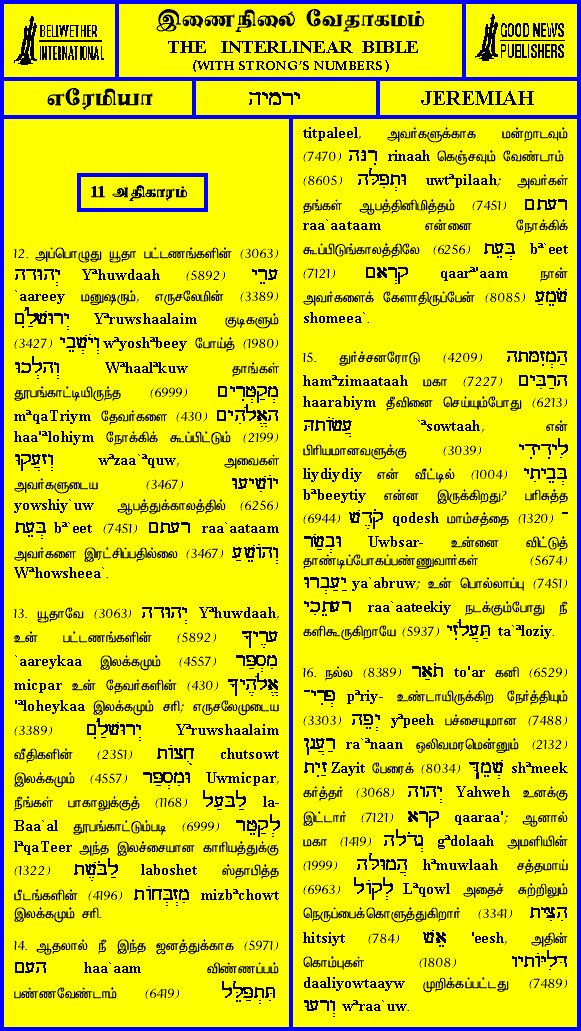 BELLWETHER
INTERNATIONAL
இணைநிலை வேதாகமம்
THE INTERLINEAR BIBLE
(WITH STRONG'S NUMBERS)
GOOD NEWS
PUBLISHERS
எரேமியா
ירמיה
JEREMIAH
11 அதிகாரம்
12. அப்பொழுது யூதா பட்டணங்களின் (3063)
יְהוּדה Yªhuwdaah (5892) ערֵי
`aareey மனுஷரும், எருசலேமின் (3389)
יְרוּשׁלַיִם Yªruwshaalaim குடிகளும்
(3427) וְיֹשְׁבֵי wªyoshªbeey போய்த் (1980)
וְהלְכוּ Wªhaalªkuw தாங்கள்
தூபங்காட்டியிருந்த (6999) מְקַטְּרִים
mªqaTriym தேவர்களை (430) הַאֱלֹהִים
haa'ªlohiym நோக்கிக் கூப்பிட்டும் (2199)
וְזעֲקוּ wªzaa`ªquw, அவைகள்
அவர்களுடைய (3467) יוֹשִׁיעוּ
yowshiy`uw ஆபத்துக்காலத்தில் (6256)
בְּעֵת bª`eet (7451) רעתם raa`aataam
அவர்களை இரட்சிப்பதில்லை (3467) וְהוֹשֵׁעַ
Wªhowsheea`.
13. யூதாவே (3063) יְהוּדה Yªhuwdaah,
உன் பட்டணங்களின் (5892) עריךָ
`aareykaa இலக்கமும் (4557) מִסְפַּר
micpar உன் தேவர்களின் (430) אֱלֹהֶיךָ
'ªloheykaa இலக்கமும் சரி; எருசலேமுடைய
(3389) יְרוּשׁלַיִם Yªruwshaalaim
வீதிகளின் (2351) חֻצוֹת chutsowt
இலக்கமும் (4557) וּמִסְפַּר Uwmicpar,
நீங்கள் பாகாலுக்குத் (1168) לַבּעַל la-
Baa`al தூபங்காட்டும்படி (6999) לְקַטֵּר
lªqaTeer அந்த இலச்சையான காரியத்துக்கு
(1322) לַבֹּשֶׁת laboshet ஸ்தாபித்த
பீடங்களின் (4196) מִזְבְּחוֹת mizbªchowt
இலக்கமும் சரி.
14. ஆதலால் நீ இந்த ஜனத்துக்காக (5971)
העם haa`aam விண்ணப்பம்
பண்ணவேண்டாம் (6419) תִּתְפַּלֵּל
titpaleel, அவர்களுக்காக மன்றாடவும்
(7470) רִנּה rinaah கெஞ்சவும் வேண்டாம்
(8605) וּתְפִלּה uwtªpilaah; அவர்கள்
தங்கள் ஆபத்தினிமித்தம் (7451) רעתם
raa`aataam என்னை நோக்கிக்
கூப்பிடுங்காலத்திலே (6256) בְּעֵת bª`eet
(7121) קרְאם qaarª'aam நான்
அவர்களைக் கேளாதிருப்பேன் (8085) שֹׁמֵעַ
shomeea`.
15. துர்ச்சனரோடு (4209) הַמְזִמּתה
hamªzimaataah மகா (7227) הרַבִּים
haarabiym தீவினை செய்யும்போது (6213)
עֲשׂוֹתה `ªsowtaah, என்
பிரியமானவளுக்கு (3039) לִידִידִי
liydiydiy என் வீட்டில் (1004) בְּבֵיתִי
bªbeeytiy என்ன இருக்கிறது? பரிசுத்த
(6944) קֹדֶשׁ qodesh மாம்சத்தை (1320) ־
וּבְשַׂר Uwbsar- உன்னை விட்டுத்
தாண்டிப்போகப்பண்ணுவார்கள் (5674)
יַעַבְרוּ ya`abruw; உன் பொல்லாப்பு (7451)
רעתֵכִי raa`aateekiy நடக்கும்போது நீ
களிகூருகிறாயே (5937) תַּעֲלֹזִי ta`ªloziy.
16. நல்ல (8389) תֹאַר to'ar கனி (6529)
פְּרִי־ pªriy- உண்டாயிருக்கிற நேர்த்தியும்
(3303) יְפֵה yªpeeh பச்சையுமான (7488)
רַעֲנן ra`ªnaan ஒலிவமரமென்னும் (2132)
זַיִת Zayit பேரைக் (8034) שְׁמֵךְ shªmeek
கர்த்தர் (3068) יהוה Yahweh உனக்கு
இட்டார் (7121) קרא qaaraa'; ஆனால்
மகா (1419) גְדֹלה gªdolaah அமளியின்
(1999) הֲמוּלּה hªmuwlaah சத்தமாய்
(6963) לְקוֹל Lªqowl அதைச் சுற்றிலும்
நெருப்பைக்கொளுத்துகிறார் (3341) הִצִּית
hitsiyt (784) אֵשׁ 'eesh, அதின்
கொம்புகள் (1808) דּלִיּוֹתיו
daaliyowtaayw முறிக்கப்பட்டது (7489)
וְרעוּ wªraa`uw.